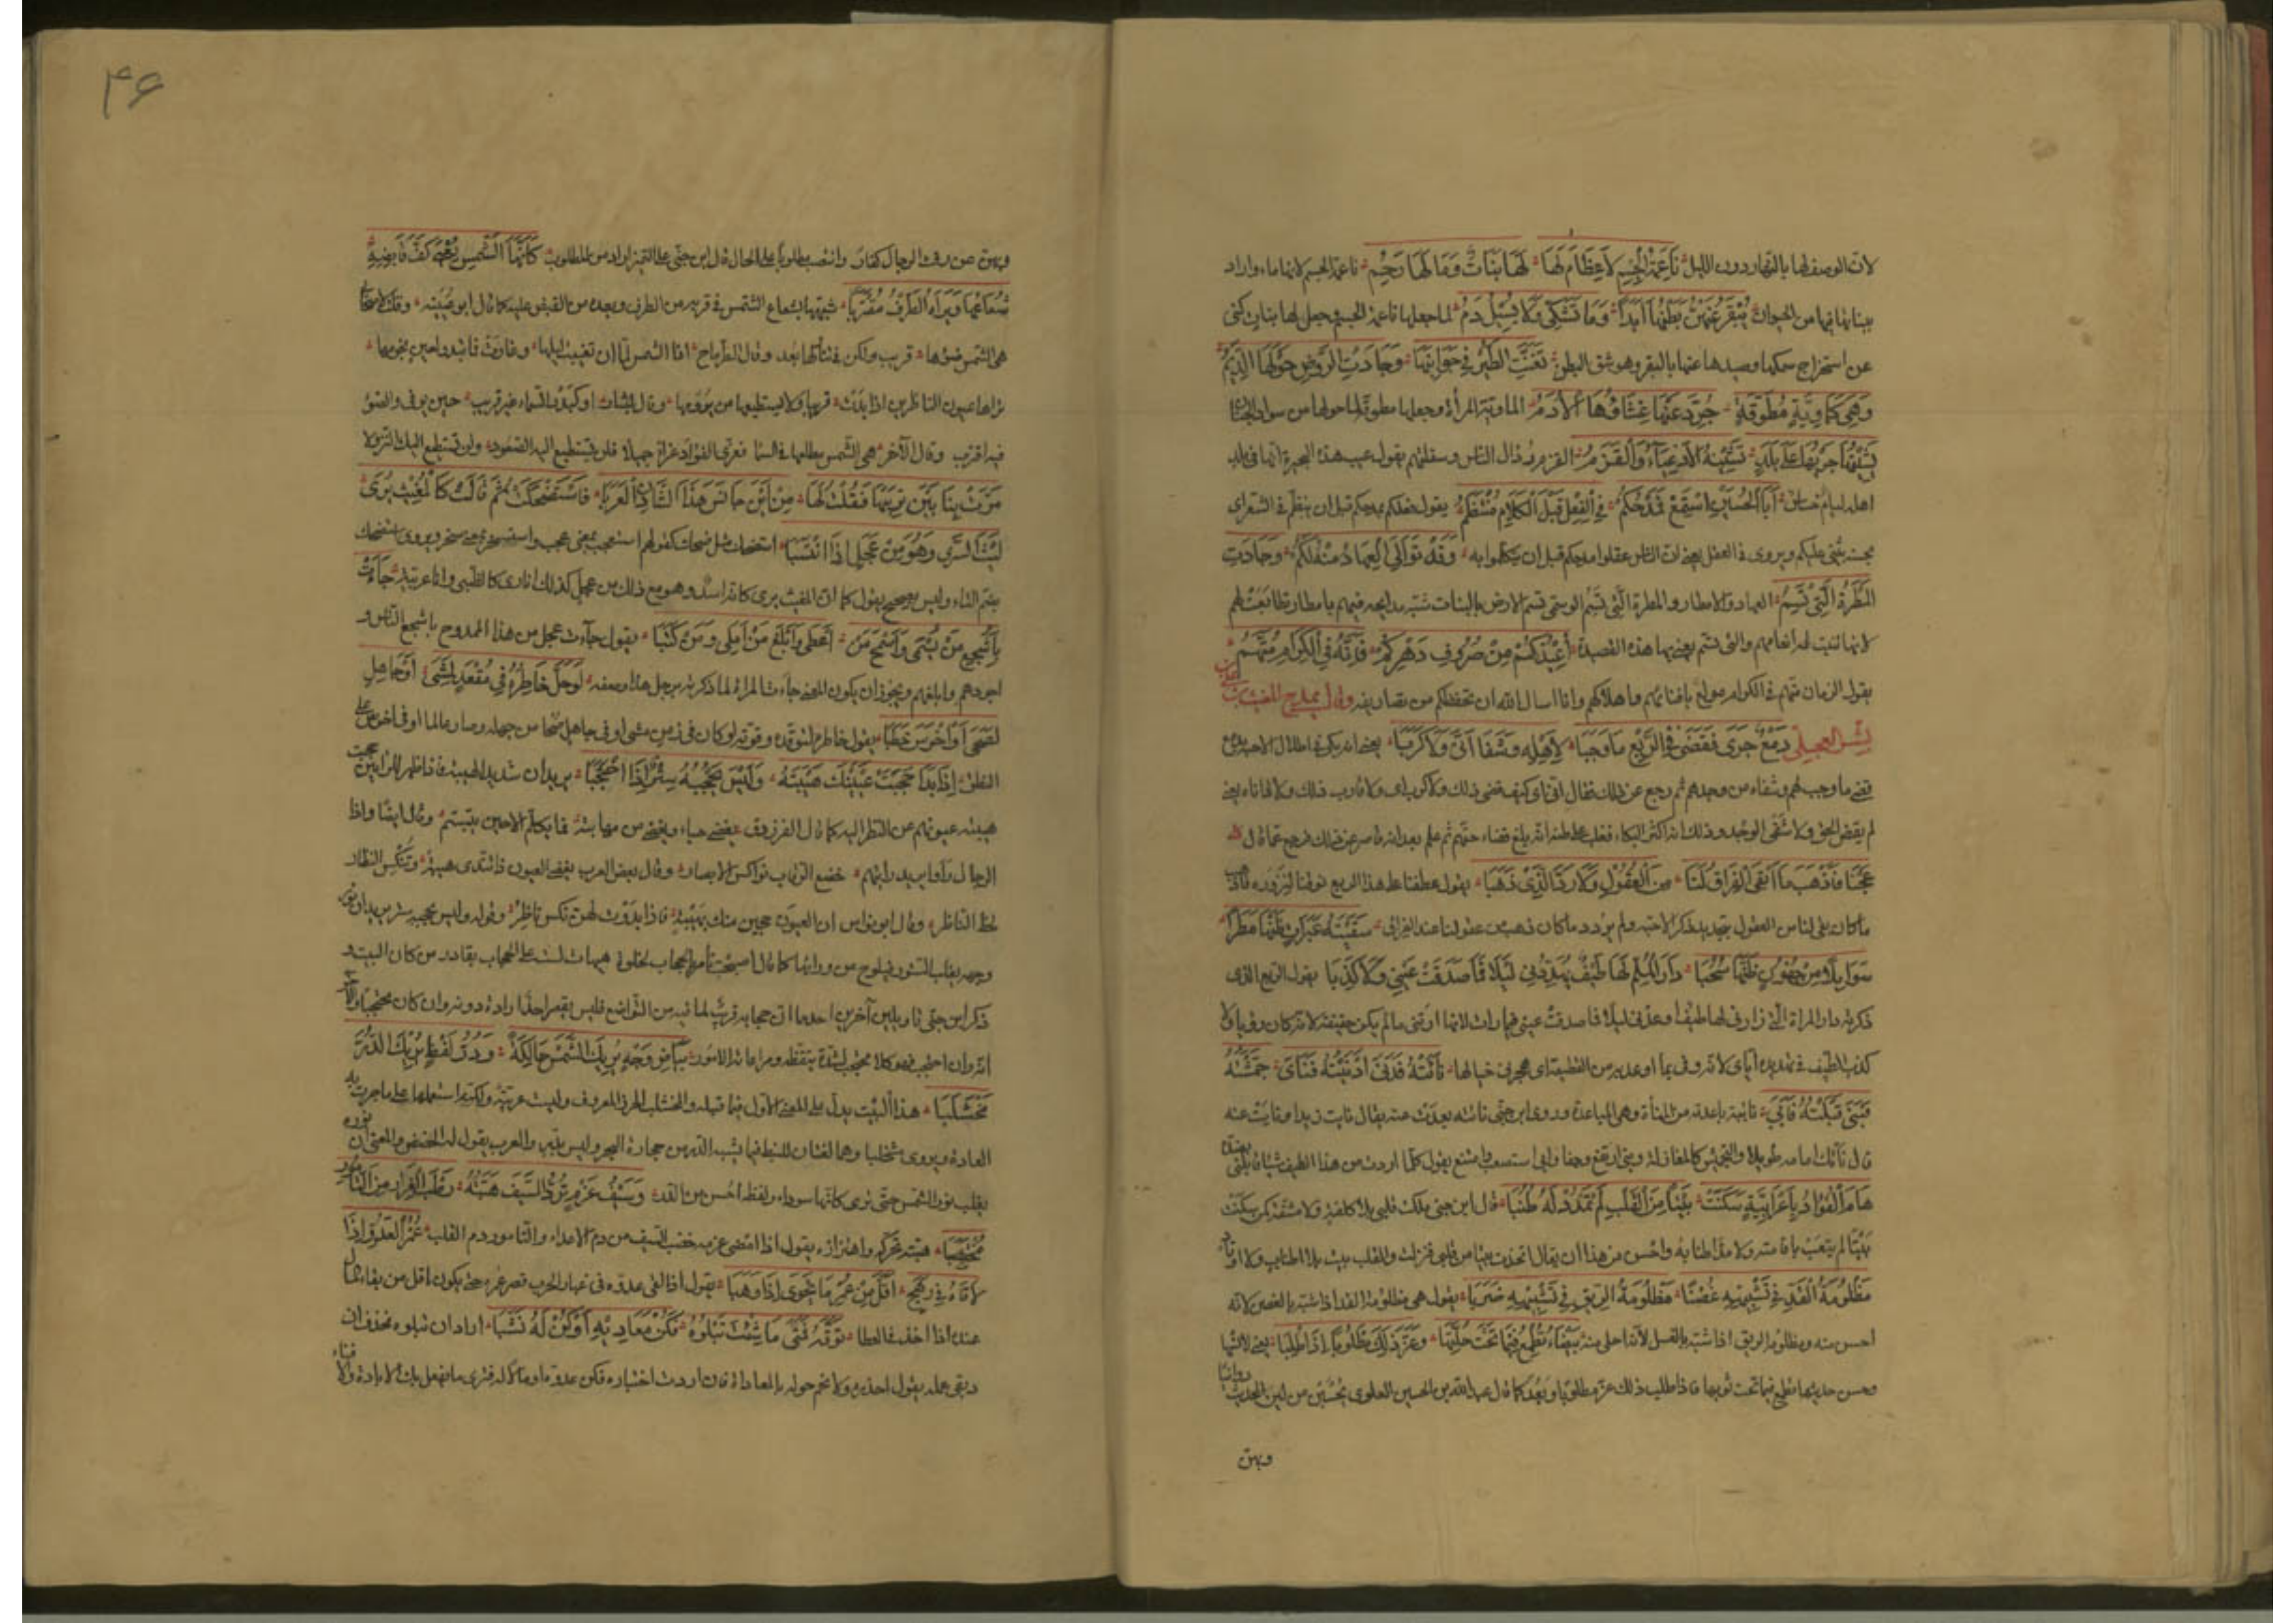 لانّ الوصف لها بالنهار دون الليل ناعمة الجسم لا عظام لها لها بنات وما لها رحم ناعمة الجسم لانها ماء واراد
ببناتها فيها من الحيوان يُبقر عنهن بطنها ابدا وما تشكّى ولا يسيل دم لما جعلها ناعمة الجسم جعل لها بنات كنى
عن استخراج سمكها وصيدها عنها بالبقر وهو شق البطن تغنّت الطير في جوانبها وجادت الروض حولها الديم
وهي كماوية مطوقة جُرّد عنها غشاؤها الادم الماوية المرآة وجعلها مطوقة لما حولها من سواد
يشينها جريها على بلد تشينه الادعياء والقزم القزم رذال الناس وسفلتهم يقول عيب هذه البحيرة انها في بلد
اهله لئام خساس ابا الحسين استمع فمدحكم في الفعل قبل الكلام منتظم يقول فعلكم يمدحكم قبل ان ينظم في الشعر اى
يثنى عليكم ويروى في العقل يعنى ان الناس عقلوا مدحكم قبل ان يتكلموا به وقد توالى العهاد منه لكم وجادت
المطرة التي تسم العهاد الامطار والمطرة التي تسم الوسمى تسم الارض بالنبات شبه مدايحه فيهم بامطار تتابعت لهم
لانها تثبت له انعامهم والتى تسم يعنى بها هذه القصيدة اعيذكم من صروف دهركم فانه في الكرام متهم
يقول الزمان متهم في الكرام مولع بافنائهم واهلاكهم وانا اسال الله ان يحفظكم من صروفه وقال يمدح المغيث بن على
بن بشر العجلى دمع جرى فقضى في الربع ما وجبا لاهله وشفا انّى ولا كربا يعنى انه بكى في اطلال الاحبة
قضى ما وجب لهم وشفاه من وجدهم ثم رجع عن ذلك فقال انّى اى كيف قضى ذلك ولا كرب اى ولا قارب ذلك
لم يقض الحق ولا شفى الوجد وذلك انه اكثر البكاء فغلب على ظنه انه بلغ قضاء حقهم ثم علم بعد انه قاصر عن ذلك فرجع عما قال
عجنا فاذهب ما ابقى الفراق لنا من العقول وما ردّ الذي ذهبا يقول عطفنا على هذا الربع
ما كان بقى لنا من العقول بتجديد ذكر الاحبة ولم يردد ما كان ذهب من عقولنا عند الفراق سقيته عبرات ظنها مطرا
سوايلا من جفون ظنها سحبا دار الملم لها طيف يهددنى ليلا فما صدقت عينى ولا كذبا يقول الربع الذى
ذكرته دار المراة التى زارنى لها طيف اوعدنى ليلا فما صدقت عينى فيما رات لانها ارتنى ما لم يكن حقيقة لانه كان رؤيا ولا
كذب الطيف في تهديده اياى لانه وفى بما اوعد به من القطيعة اى هجرنى خيالها ناءيته فدنى ادنيته فناى جمشته
فنبى قبلته فابى
هام الفؤاد باعرابية سكنت بيتا من القلب لم تمدد له طنبا قال ابن جنى ملكت قلبى بلا كلفة ولا مشقة فكن سكنت
بيتا لم يتعب باقامته ولا مدّ اطنابه واحسن من هذا ان يقال اتخذت بيتا من قلبى فنزلته والقلب بيت بلا اطناب ولا اوتاد
مظلومة القد في تشبيهه غصنا مظلومة الريق في تشبيهه ضربا يقول هي مظلومة القد اذا شبه بالغصن لانه
احسن منه ومظلومة الريق اذا شبه بالعسل لانه احلى منه بيضاء تطمع فيما تحت حلتها وعزّ ذلك مطلوبا اذا طلبا يعنى لانسها
وحسن حديثها تطمع فيما تحت ثوبها فاذا طلب ذلك عز مطلوبا وبعد كما قال عبد الله بن الحسين العلوى يحسبن من لين الحديث
وبهن
۴۶
وبهن عن رفث الرجال نفار وانتصب مطلوبا على الحال قال ابن جنى على التمييز اراد من مطلوب كانها الشمس يعيى كف قابضه
شعاعها ويراه الطرف مقتربا شبهها بشعاع الشمس في قربه من الطرف وبعده من القبض عليه كما قال ابو عيينة وقلت لاصحابى
هى الشمس ضوءها قريب ولكن في تناولها بعد وقال الطرماح انا الشمس لما ان تغيب ليلها وغارت فما تبدو لعين نجومها
تراها عيون الناظرين اذا بدت قريبا ولا يسطيعها من يرومها وقال بشار او كبدر السماء غير قريب حين يوفى والضوء
فيه اقترب وقال الآخر هى الشمس مطلبها في السما فعزّ الفؤاد عزاء جميلا فلن تستطيع اليه الصعود ولن تستطيع اليك النزولا
مرت بنا بين تربيها فقلت لها من اين جانس هذا الشادن العربا فاستضحكت ثم قالت كالمغيث يرى
ليث الشرى وهو من عجل اذا انتسبا استضحك مثل ضحك كقولهم استعجب بمعنى عجب واستسخر بمعنى سخر ويروى استضحك
بضم التاء وليس بصحيح يقول كما ان المغيث يرى كانه اسد وهو مع ذلك من عجل كذلك انا ارى كالظبى وانا عربية جاءت
باشجع من يسمى واسمح من اعطى وابلغ من املى ومن كتبا يقول جاءت عجل من هذا الممدوح باشجع الناس و
اجودهم وابلغهم ويجوز ان يكون المعنى جاءت المراة لما ذكرته برجل هذا وصفه لو حل خاطره في مقعد لمشى او جاهل
لصحى او اخرس خطبا يقول خاطره لتوقده وقوته لو كان في زمن مشى او في جاهل صحا من جهله وصار عالما او في اخرس
النطق اذا بدا حجبت عينيك هيبته وليس يحجبه ستر اذا احتجبا يريد ان شديد الهيبة فاذا ظهر للرائين حجبت
هيبته عيونهم عن النظر اليه كما قال الفرزدق يغضى حياء ويغضى من مهابته فما يكلم الا حين يبتسم وقال ايضا واذا
الرجال راوا يزيد رايتهم خضع الرقاب نواكس الابصار وقال بعض العرب يغضى العيون اذا تبدى هيبة وينكس النظار
لحظ الناظر وقال ابو نواس ان العيون حجبن عنك بهيبة فاذا بدوت لهن نكس ناظر وقوله وليس يحجبه ستر يريد ان نور
وجهه يغلب الستور فيلوح من ورائها كما قال اصبحت تامر بالحجاب لخلوة هيهات لست على الحجاب بقادر من كان
ذكر ابن جنى تاويلين آخرين احدهما ان حجابه قريب لما فيه من التواضع فليس يقصر احد اراده دونه وان كان محتجبا
انه وان احتجب فهو كلا محتجب لشدة يقظته ومراعاته الامور بياض وجه يريك الشمس حالكة ودر لفظ يريك الدر
مخشلبا هذا البيت يدل على المعنى الاول فيما قبله والخشلب الخرز المعروف وليست عربية ولكنه استعملها على ما جرت به
العادة ويروى مشخلبا وهما لغتان للنبط فيما يشبه الدر من حجارة البحر وليس بدر والعرب يقول له الخضض والمعنى ان نوره
يغلب نور الشمس حتى ترى كانها سوداء ولفظه احسن من الدر وسيف عزم ترد السيف هبته رطب الغرار من التامور
مختضبا هبته تحركه واهتزازه يقول اذا امضى عزمه خضب السيف من دم الاعداء والتامور دم القلب عمر العدو اذا
لاقاه في رهج اقل من عمر ما يحوى اذا وهبا يقول اذا لقى عدوه في غبار الحرب قصر عمره حتى يكون اقل من بقاء المال
عنده اذا اخذ في العطا توقّه فمتى ما شئت تبلوه فكن معاديه او كن له نشبا اراد ان تبلوه فحذف ان
وبقى عمله يقول احذره ولا تحم حوله بالمعاداة فان اردت اختباره فكن عدوه او ماله فترى ما يفعل بك من الابادة والافناء